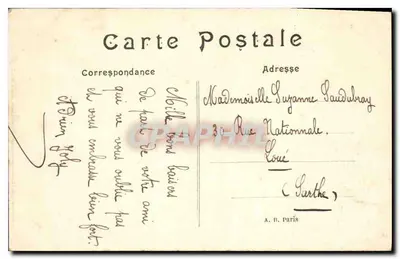 Carte Postale
Correspondance
Adresse
Mille bons baisers
de part de votre ami
qui ne vous oublie pas
et vous embrasse bien fort.
Adrien Joly
Mademoiselle Suzanne Gaudubray
30 Rue Nationale.
Loué
(Sarthe)
A. R. Paris